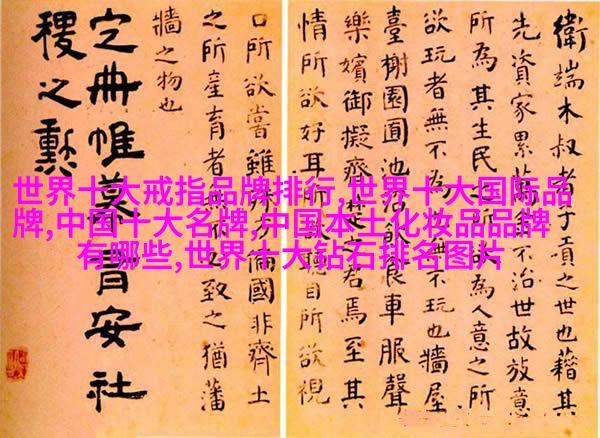 衛端木叔者子貢之世也藉其
先資家累萬金不治世故放意
所為其生民之所欲為人意之所
欲玩者無不為也無不玩也牆屋
臺榭園囿池沼飲食車服聲
樂嬪御擬齊楚之君焉至其
情所欲好耳所欲聽目所欲視
口所欲嘗雖殊方偏國非齊土
之所產育者無不必致之猶藩
牆之物也
定冊帷幕有安社
稷之勲
世界十大戒指品牌排行,世界十大国际品
牌,中国十大名牌,中国本土化妆品品牌
有哪些,世界十大钻石排名图片